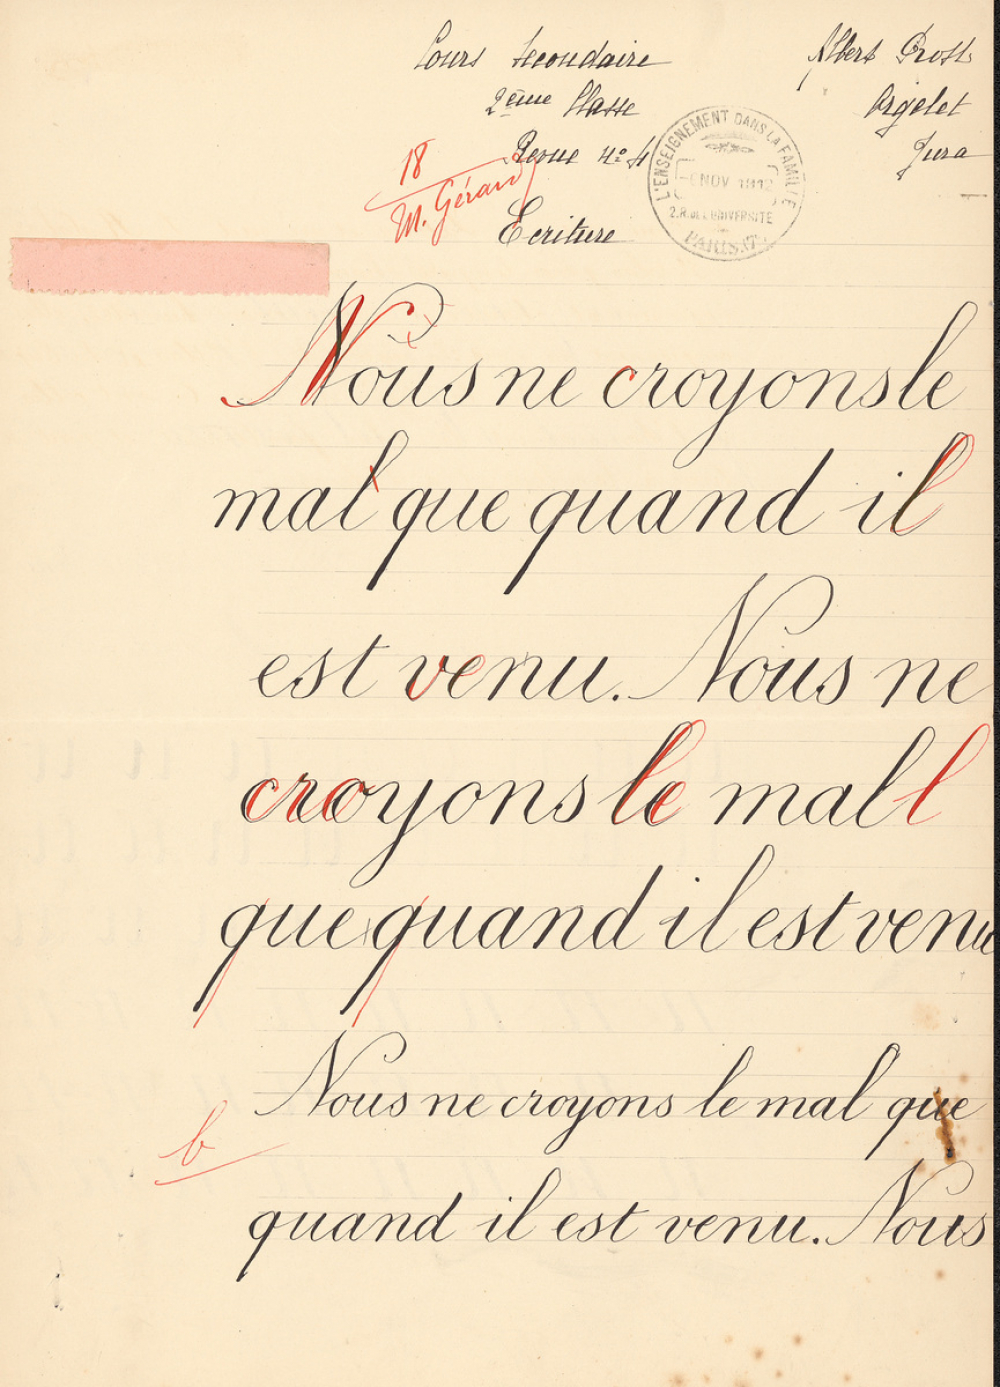 Cours secondaire
2ème Classe
Revue nº 4
Albert Prost
Orgelet
Jura
18
M. Gérard
Ecriture
L'ENSEIGNEMENT DANS LA FAMILLE
NOV 1912
2.R. DE L'UNIVERSITÉ
PARIS.(7e)
Nous ne croyons le
mal que quand il
est venu. Nous ne
croyons le mal l
que quand il est venu
Nous ne croyons le mal que
b
quand il est venu. Nous